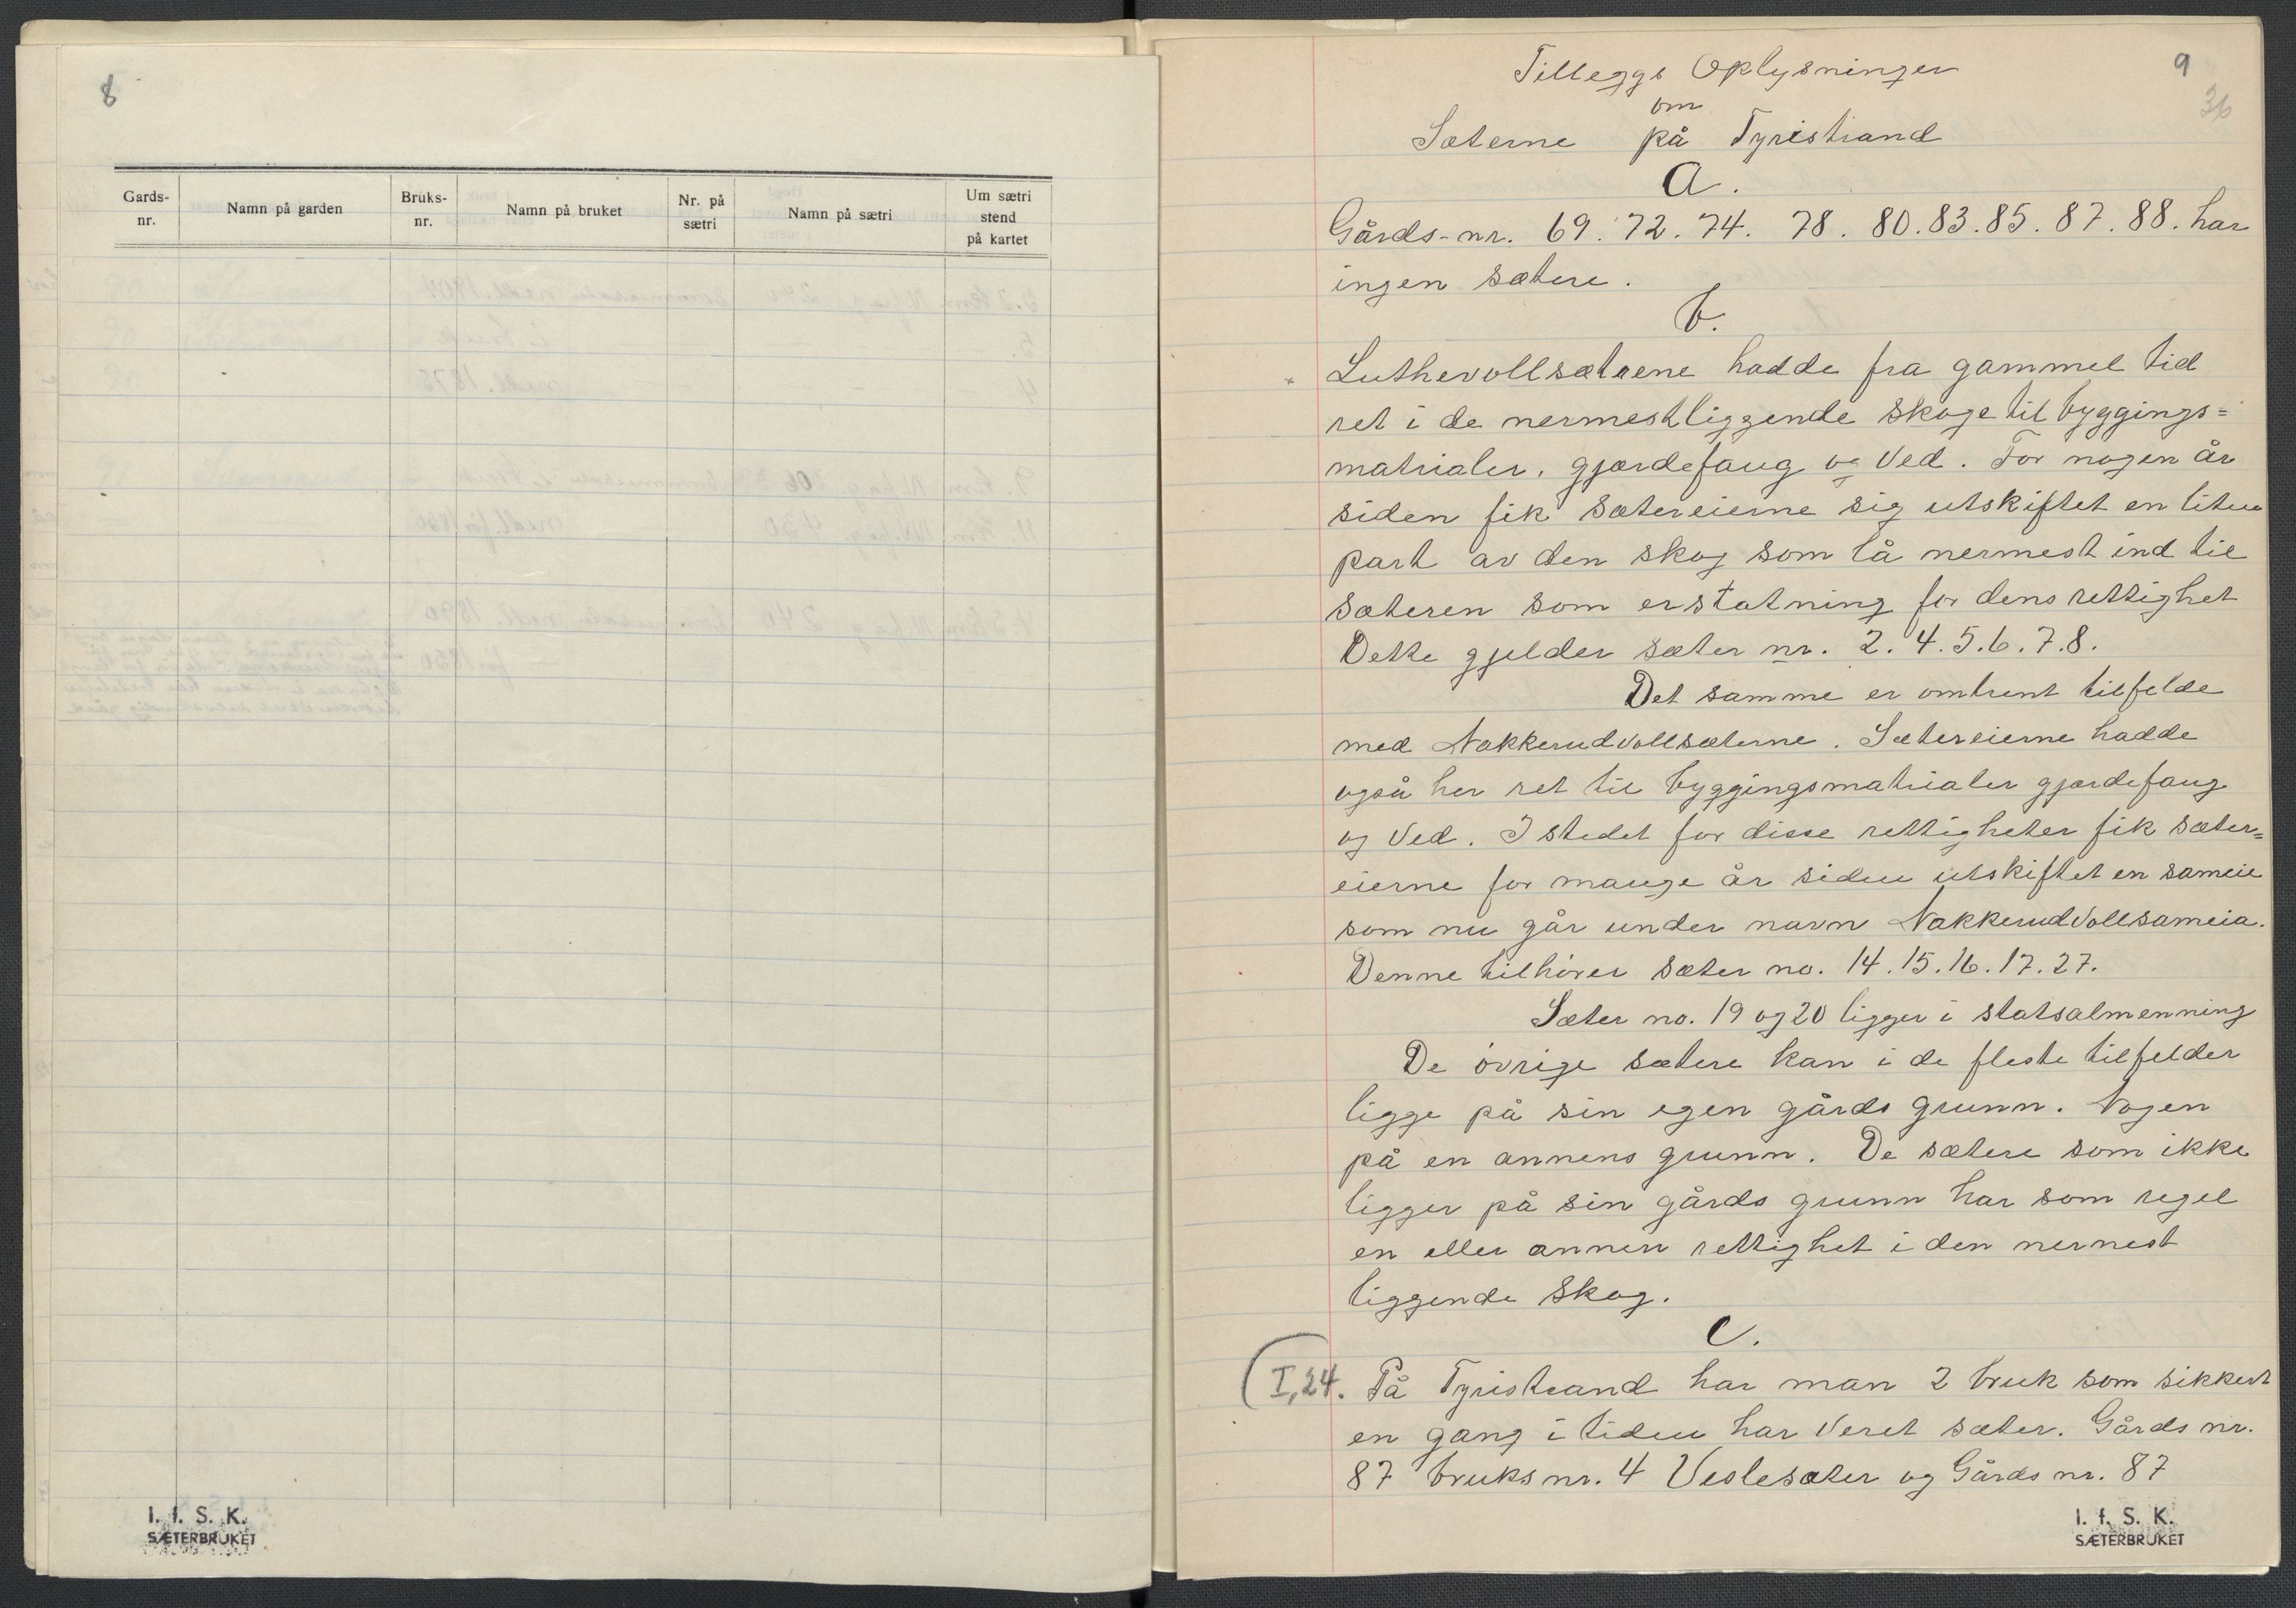 8
Gards-nr. Namn på garden Bruks-nr. Namn på bruket Nr. på sætri Namn på sætri Um sætri stend på kartet
I. f. S. K.
SÆTERBRUKET
9
36
Tilleggs Oplysninger
om
Sæterne på Tyristrand
a.
Gårds-nr. 69. 72. 74. 78. 80. 83. 85. 87. 88. har
ingen sætere.
b.
x Luthevollsætrene hadde fra gammel tid
ret i de nermestliggende skoge til byggings=
matrialer, gjærdefang og Ved. For nogen år
siden fik sætereierne sig utskiftet en liten
part av den skog som lå nermest ind til
sæteren som erstatning for dens rettighet
Dette gjelder sæter nr. 2. 4. 5. 6. 7. 8.
Det samme er omtrent tilfelde
med Nakkerudvollsæterne. Sætereierne hadde
også her ret til byggingsmatrialer gjærdefang
og Ved. I stedet for disse rettigheter fik sæter=
eierne for mange år siden utskiftet en sameie
som nu går under navn Nakkerudvollsameia.
Denne tilhører sæter no. 14. 15. 16. 17. 27.
Sæter no. 19 og 20 ligger i statsalmenning
De øvrige sætere kan i de fleste tilfelder
ligge på sin egen gårds grunn. Nogen
på en annens grunn. De sætere som ikke
ligger på sin gårds grunn har som regel
en eller annen rettighet i den nermest
liggende skog.
C.
(I,24. På Tyristrand har man 2 bruk som sikkert
en gang i tiden har Veret sæter. Gårds nr.
87 bruks nr. 4 Veslesæter og Gårds nr. 87
I. f. S. K.
SÆTERBRUKET